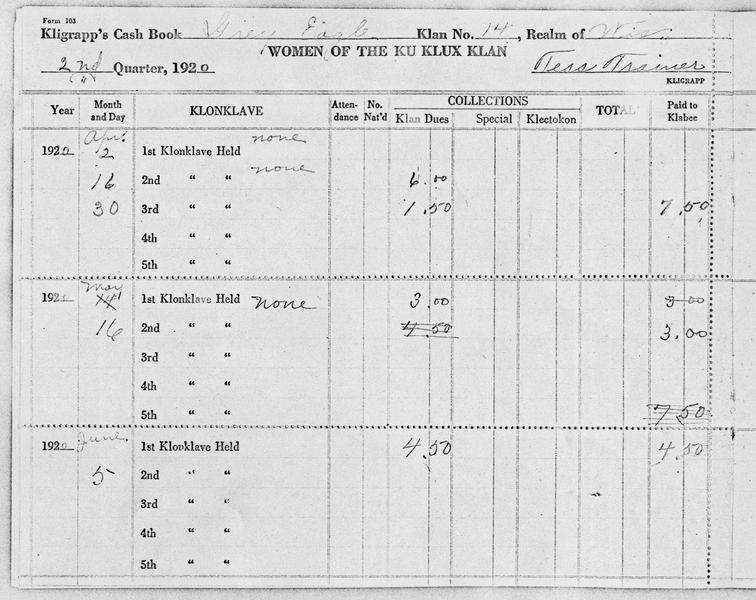 Form 103
Kligrapp's Cash Book Grey Eagle Klan No. 14, Realm of Wis.
WOMEN OF THE KU KLUX KLAN
2nd Quarter, 1920 Tess Trainer
KLIGRAPP
Year Month and Day KLONKLAVE Attendance No. Nat'd COLLECTIONS Klan Dues Special Klectokon TOTAL Paid to Klabee
Apr.
1920 2 1st Klonklave Held none
16 2nd " " none 6.00
30 3rd " " 1.50 7.50
4th " "
5th " "
May
1920 14 1st Klonklave Held none 3.00 3.00
16 2nd " " 4.50 3.00
3rd " "
4th " "
5th " " 7.50
1920 June 1st Klonklave Held 4.50 4.50
5 2nd " "
3rd " "
4th " "
5th " "